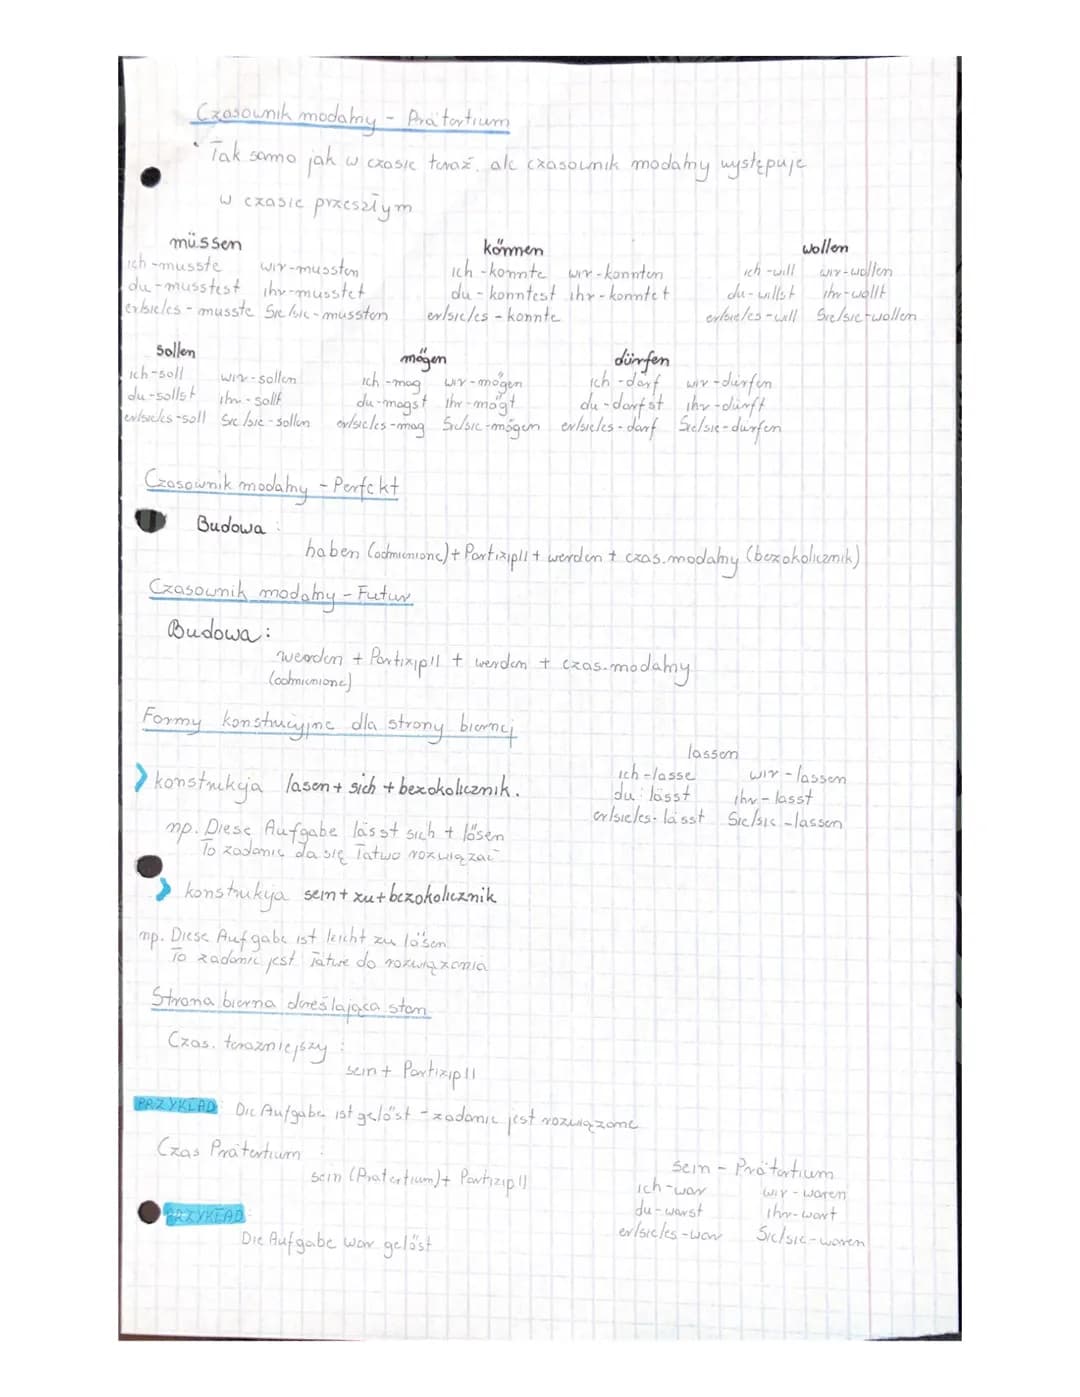 Czasownik modalny - Prätertium
• Tak samo jak w czasie teraź. ale czasownik modalny występuje
w czasie przeszłym
müssen
ich - musste wir - mussten
du - musstest ihr - musstet
er/sie/es - musste Sie/sie - mussten
können
ich - konnte wir - konnten
du - konntest ihr - konntet
er/sie/es - konnte
wollen
ich - will wir - wollen
du - willst ihr - wollt
er/sie/es - will Sie/sie - wollen
sollen
ich - soll wir - sollen
du - sollst ihr - sollt
er/sie/es - soll Sie/sie - sollen
mögen
ich - mag wir - mögen
du - magst ihr - mögt
er/sie/es - mag Sie/sie - mögen
dürfen
ich - darf wir - dürfen
du - darfst ihr - dürft
er/sie/es - darf Sie/sie - dürfen
Czasownik modalny - Perfekt
Budowa :
haben (odmienione) + Partizip II + werden + czas. modalny (bezokolicznik)
Czasownik modalny - Futur
Budowa :
werden + Partizip II + werden + czas. modalny
(odmienione)
Formy konstrucyjne dla strony biernej
konstrukcja lasen + sich + bezokolicznik.
np. Diese Aufgabe lässt sich + lösen
To zadanie da się łatwo rozwiązać
lassen
ich - lasse wir - lassen
du : lässt ihr - lasst
er/sie/es - lässt Sie/sie - lassen
konstrukcja sein + zu + bezokolicznik
np. Diese Aufgabe ist leicht zu lösen
To zadanie jest łatwe do rozwiązania
Strona bierna określająca stan
Czas. teraźniejszy :
sein + Partizip II
PRZYKŁAD: Die Aufgabe ist gelöst - zadanie jest rozwiązane
Czas Prätertium :
sein (Pratertium) + Partizip II
sein - Prätertium
ich - war wir - waren
du - warst ihr - wart
er/sie/es - war Sie/sie - waren
PRZYKŁAD:
Die Aufgabe war gelöst